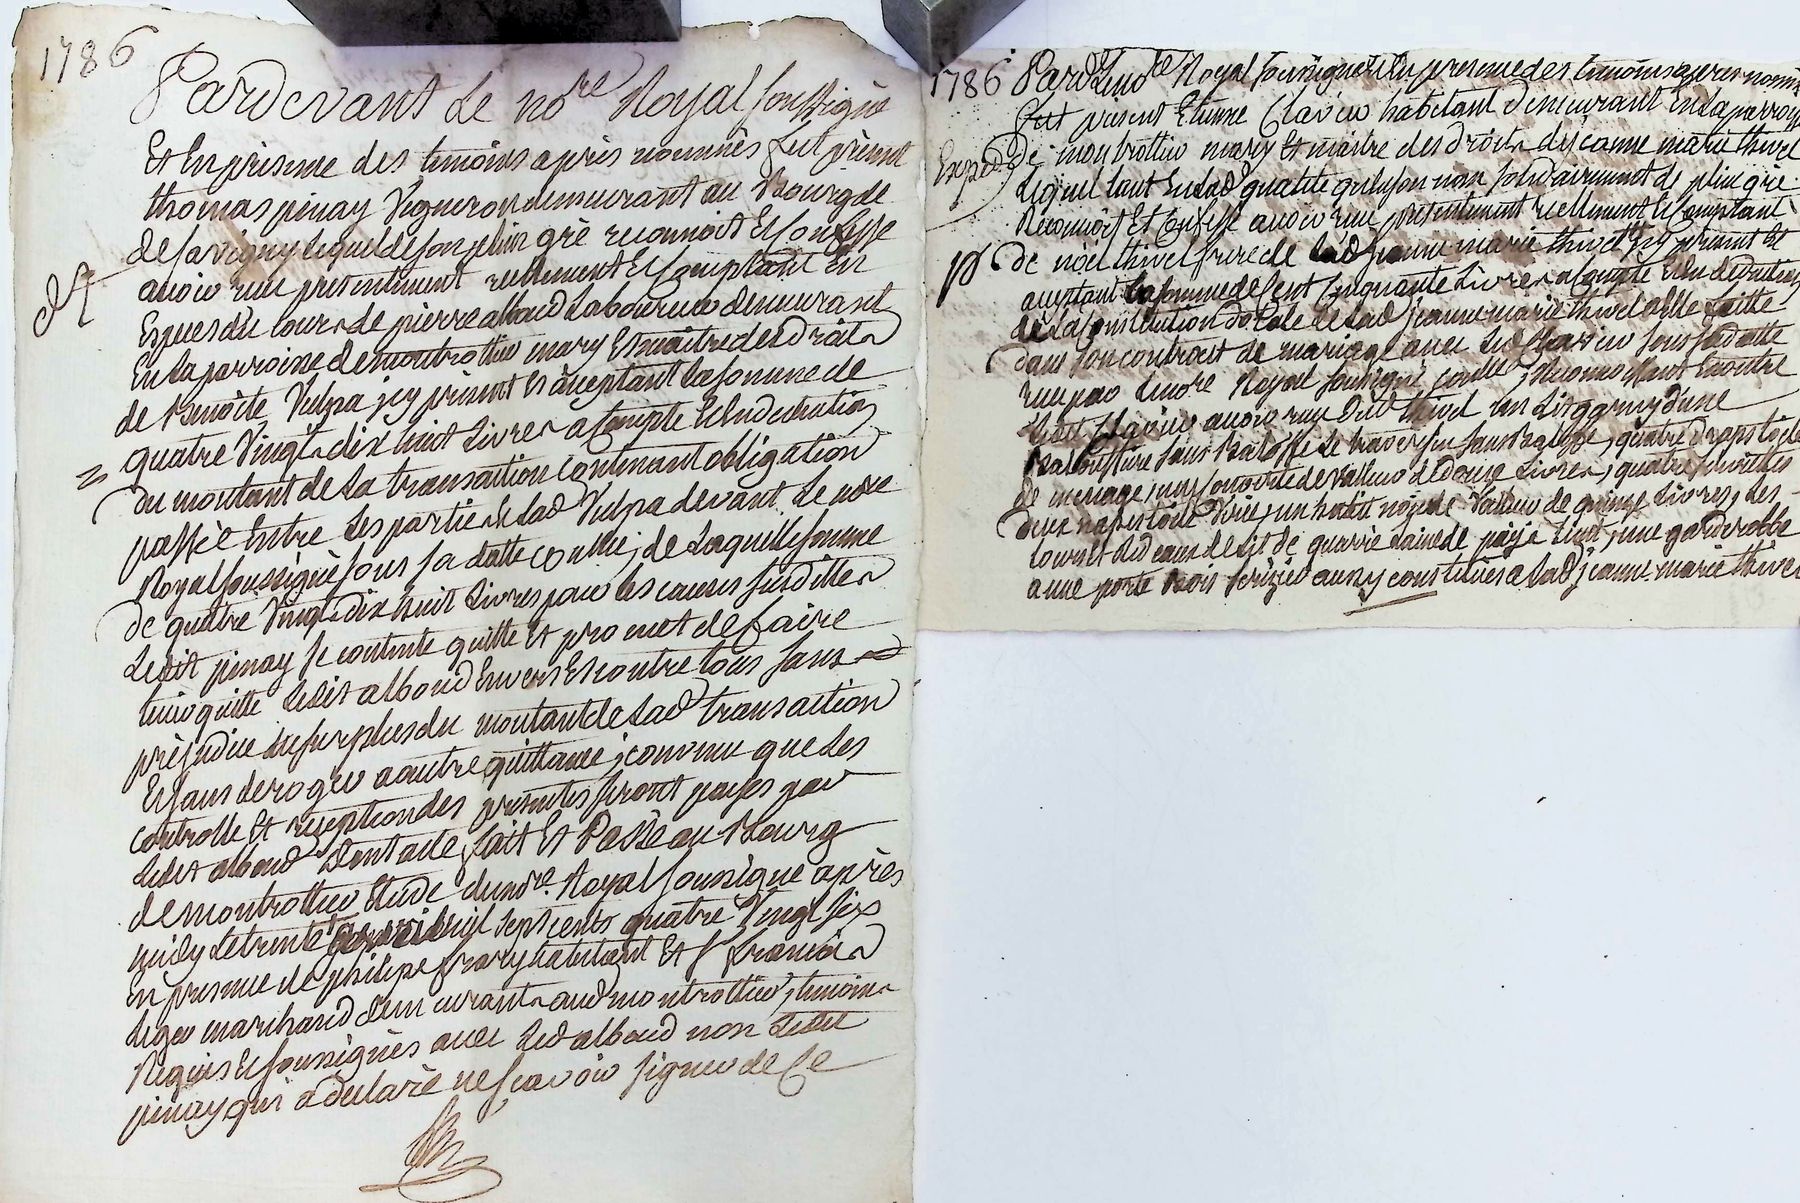 1786
Pardevant Le no.re Royal soussigné
Et En presence des temoins après nommés fut present
thomas pinay Vigneron demeurant au Bourg de
de savigny lequel de son plein gré reconnoit Et confesse
avoir reçu presentement reellement Et Comptant En
Especes du cours de pierre alboud Laboureur demeurant
En la parroisse de montrottier mary Et maitre des droits
de Benoite Vulpa jcy present Et acceptant la somme de
quatre Vingt dix huit Livres a Compte Et En deduction
du montant de la transaction contenant obligation
passée Entre Les parties Et lad Vulpa devant Le no.re
Royal soussigné sous sa datte contlée; de laquelle somme
de quatre Vingt dix huit Livres pour les causes susdittes
Ledit pinay se contente quitte Et promet de faire
tenir quitte Ledit alboud Envers Et contre tous sans
prejudice du surplus du montant de Lad transaction
Et sans deroger a autre quittance, convenu que Les
controlle Et reception des presentes seront payés par
Ledit alboud Dont acte, fait Et Passé au Bourg
de montrottier Etude du no.re Royal soussigné après
midy Le trente avril mil sept cents quatre Vingt six
En presence de philipe frary habitant Et s.r françois
Leger marchand demeurants aud montrottier, temoins
Requis Et soussignés avec Led alboud non Ledit
pinay qui a declaré ne sçavoir signer de Ce
1786 Pard. Le no.re Royal soussigné et En presence des temoins apres nommés
fut present Etienne Clavier habitant demeurant En la parroisse
Exped. de montrottier mary Et maitre des droits de jeanne marie thivel
Lequel tant En lad qualité qu'En son nom solidairement de plein gré
Reconnoit Et Confesse avoir reçu presentement reellement Et Comptant
de nöel thivel frere de Lad jeanne marie thivel jcy present Et
acceptant la somme de Cent Cinquante Livres a Compte Et En deduction
de La Constitution dotale de Lad jeanne marie thivel a Elle faitte
dans son contract de mariage avec Led Clavier sous sa datte
reçu par Le no.re Royal soussigné contlé, Reconnoissant En outre
Ledit Clavier avoir reçu Dud thivel un Lit garny d'une
Balouffiere sans Balouffe Le traversin sans Balouffe, quatre draps toile
de menage, une couverte de Valleur de douze Livres, quatre serviettes
deux nappes toile Unie, un habit noir de Valeur de quinze Livres, Les
tours et Rideaux de Lit de quarré Laine de païs a teint, une garderobbe
a une porte Bois serizier aussy constitués a Lad jeanne marie thivel